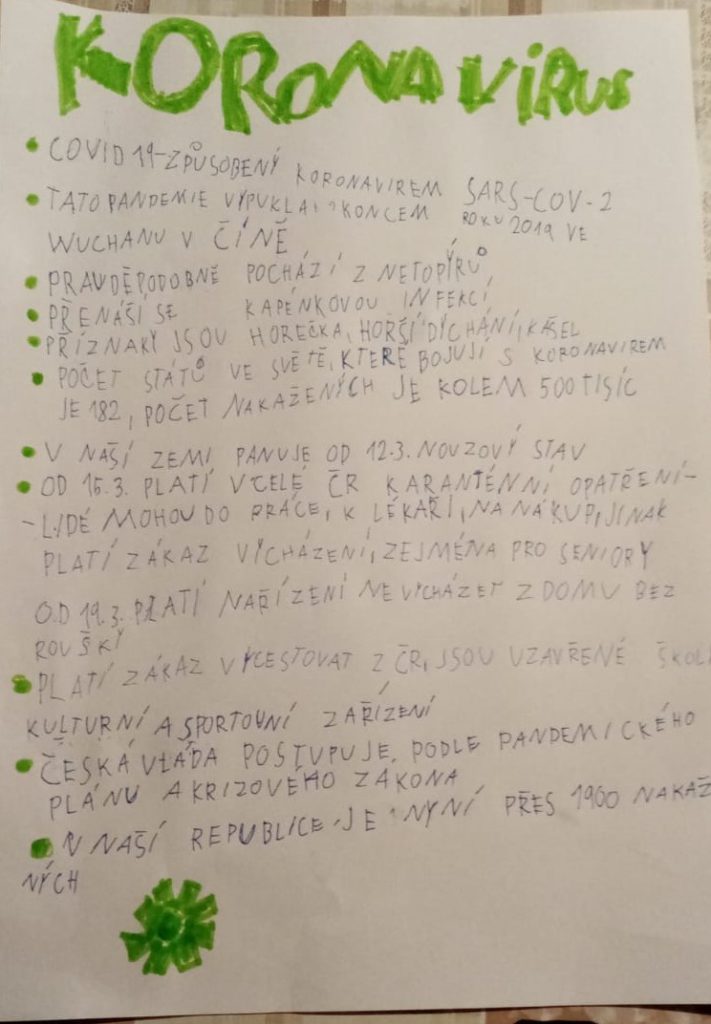 KORONAVIRUS
• COVID 19-ZPŮSOBENÝ KORONAVIREM SARS-COV-2
• TATO PANDEMIE VYPUKLA KONCEM ROKU 2019 VE
WUCHANU V ČÍNĚ
• PRAVDĚPODOBNĚ POCHÁZÍ Z NETOPÝRŮ,
• PŘENÁŠÍ SE KAPÉNKOVOU INFEKCÍ
• PŘÍZNAKY JSOU HOREČKA, HORŠÍ DÝCHÁNÍ, KAŠEL
• POČET STÁTŮ VE SVĚTĚ, KTERÉ BOJUJÍ S KORONAVIREM
JE 182, POČET NAKAŽENÝCH JE KOLEM 500 TISÍC
• V NAŠÍ ZEMI PANUJE OD 12.3. NOUZOVÝ STAV
• OD 15.3. PLATÍ V CELÉ ČR KARANTÉNNÍ OPATŘENÍ-
-LIDÉ MOHOU DO PRÁCE, K LÉKAŘI, NA NÁKUP, JINAK
PLATÍ ZÁKAZ VYCHÁZENÍ, ZEJMÉNA PRO SENIORY
OD 19.3. PLATÍ NAŘÍZENÍ NEVYCHÁZET Z DOMU BEZ
ROUŠKY
• PLATÍ ZÁKAZ VYCESTOVAT Z ČR, JSOU UZAVŘENÉ ŠKOL
KULTURNÍ A SPORTOVNÍ ZAŘÍZENÍ
• ČESKÁ VLÁDA POSTUPUJE. PODLE PANDEMICKÉHO
PLÁNU A KRIZOVÉHO ZÁKONA
• V NAŠÍ REPUBLICE JE NYNÍ PŘES 1900 NAKAŽ
NÝCH